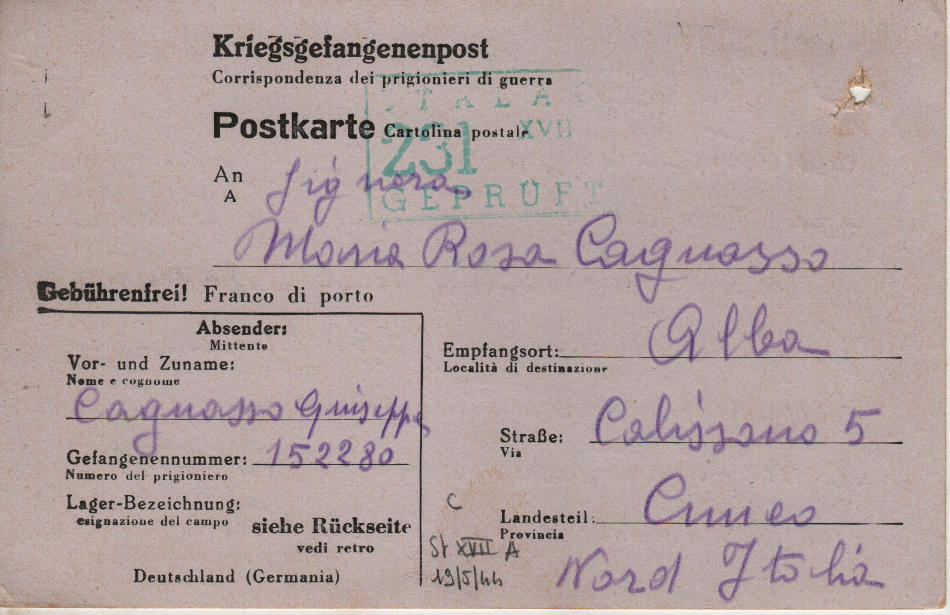 Kriegsgefangenenpost
Corrispondenza dei prigionieri di guerra
STALA
XVII
231
GEPRÜFT
Postkarte Cartolina postale
An
A
Signora
Maria Rosa Cagnasso
Gebührenfrei! Franco di porto
Absender:
Mittente
Vor- und Zuname:
Nome e cognome
Cagnasso Giuseppe
Gefangenennummer: 152280
Numero del prigioniero
Lager-Bezeichnung:
esignazione del campo
siehe Rückseite
vedi retro
Deutschland (Germania)
Alba
Empfangsort:
Località di destinazione
Straße: Calissano 5
Via
Landesteil: Cuneo
Provincia
Nord Italia
C
St XVII A
19/5/44